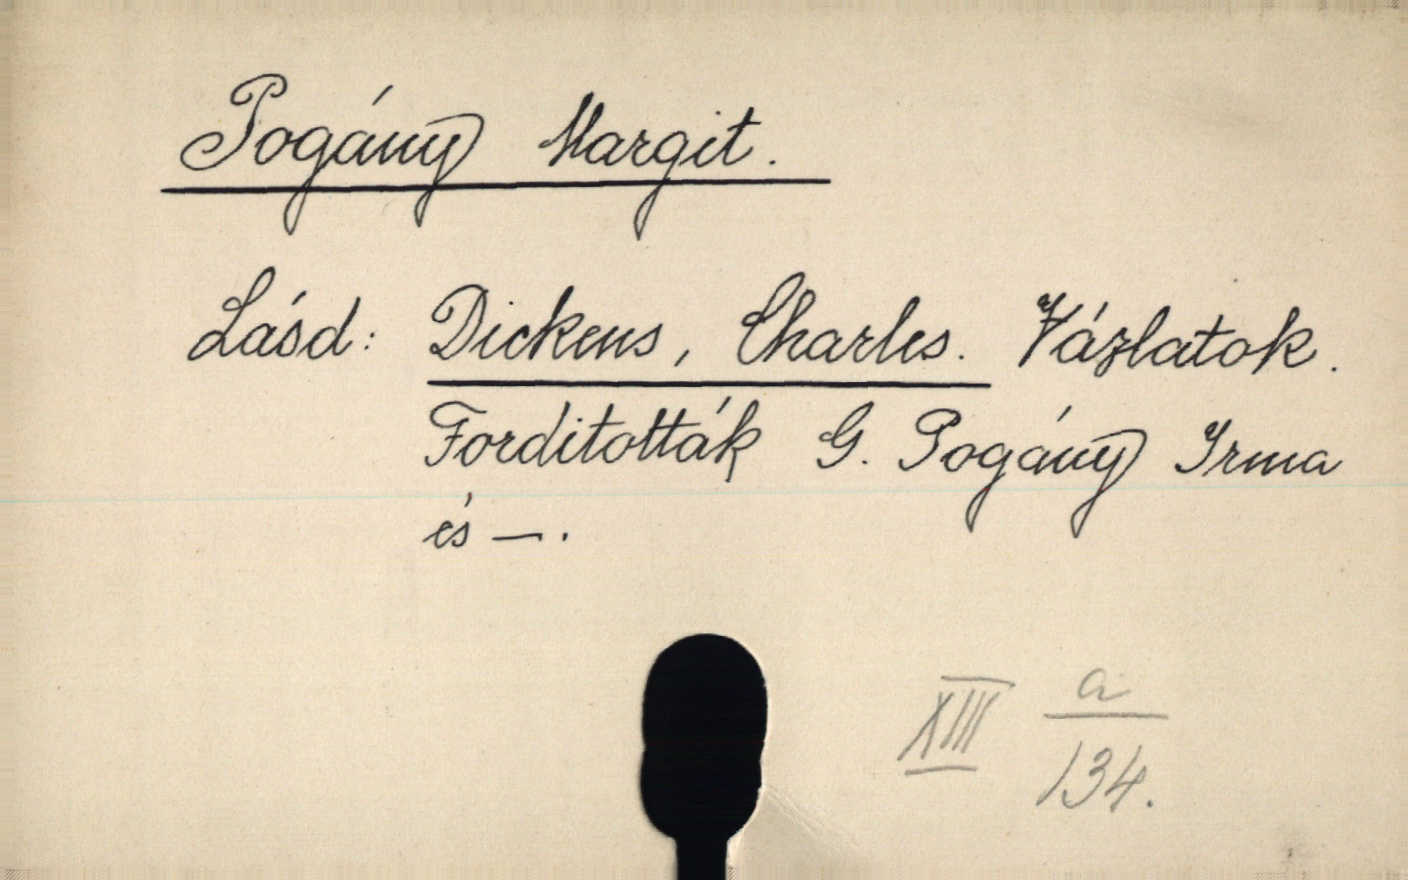 Pogány Margit.
Lásd: Dickens, Charles. Vázlatok.
Forditották G. Pogány Irma
és —.
XIII a
134.